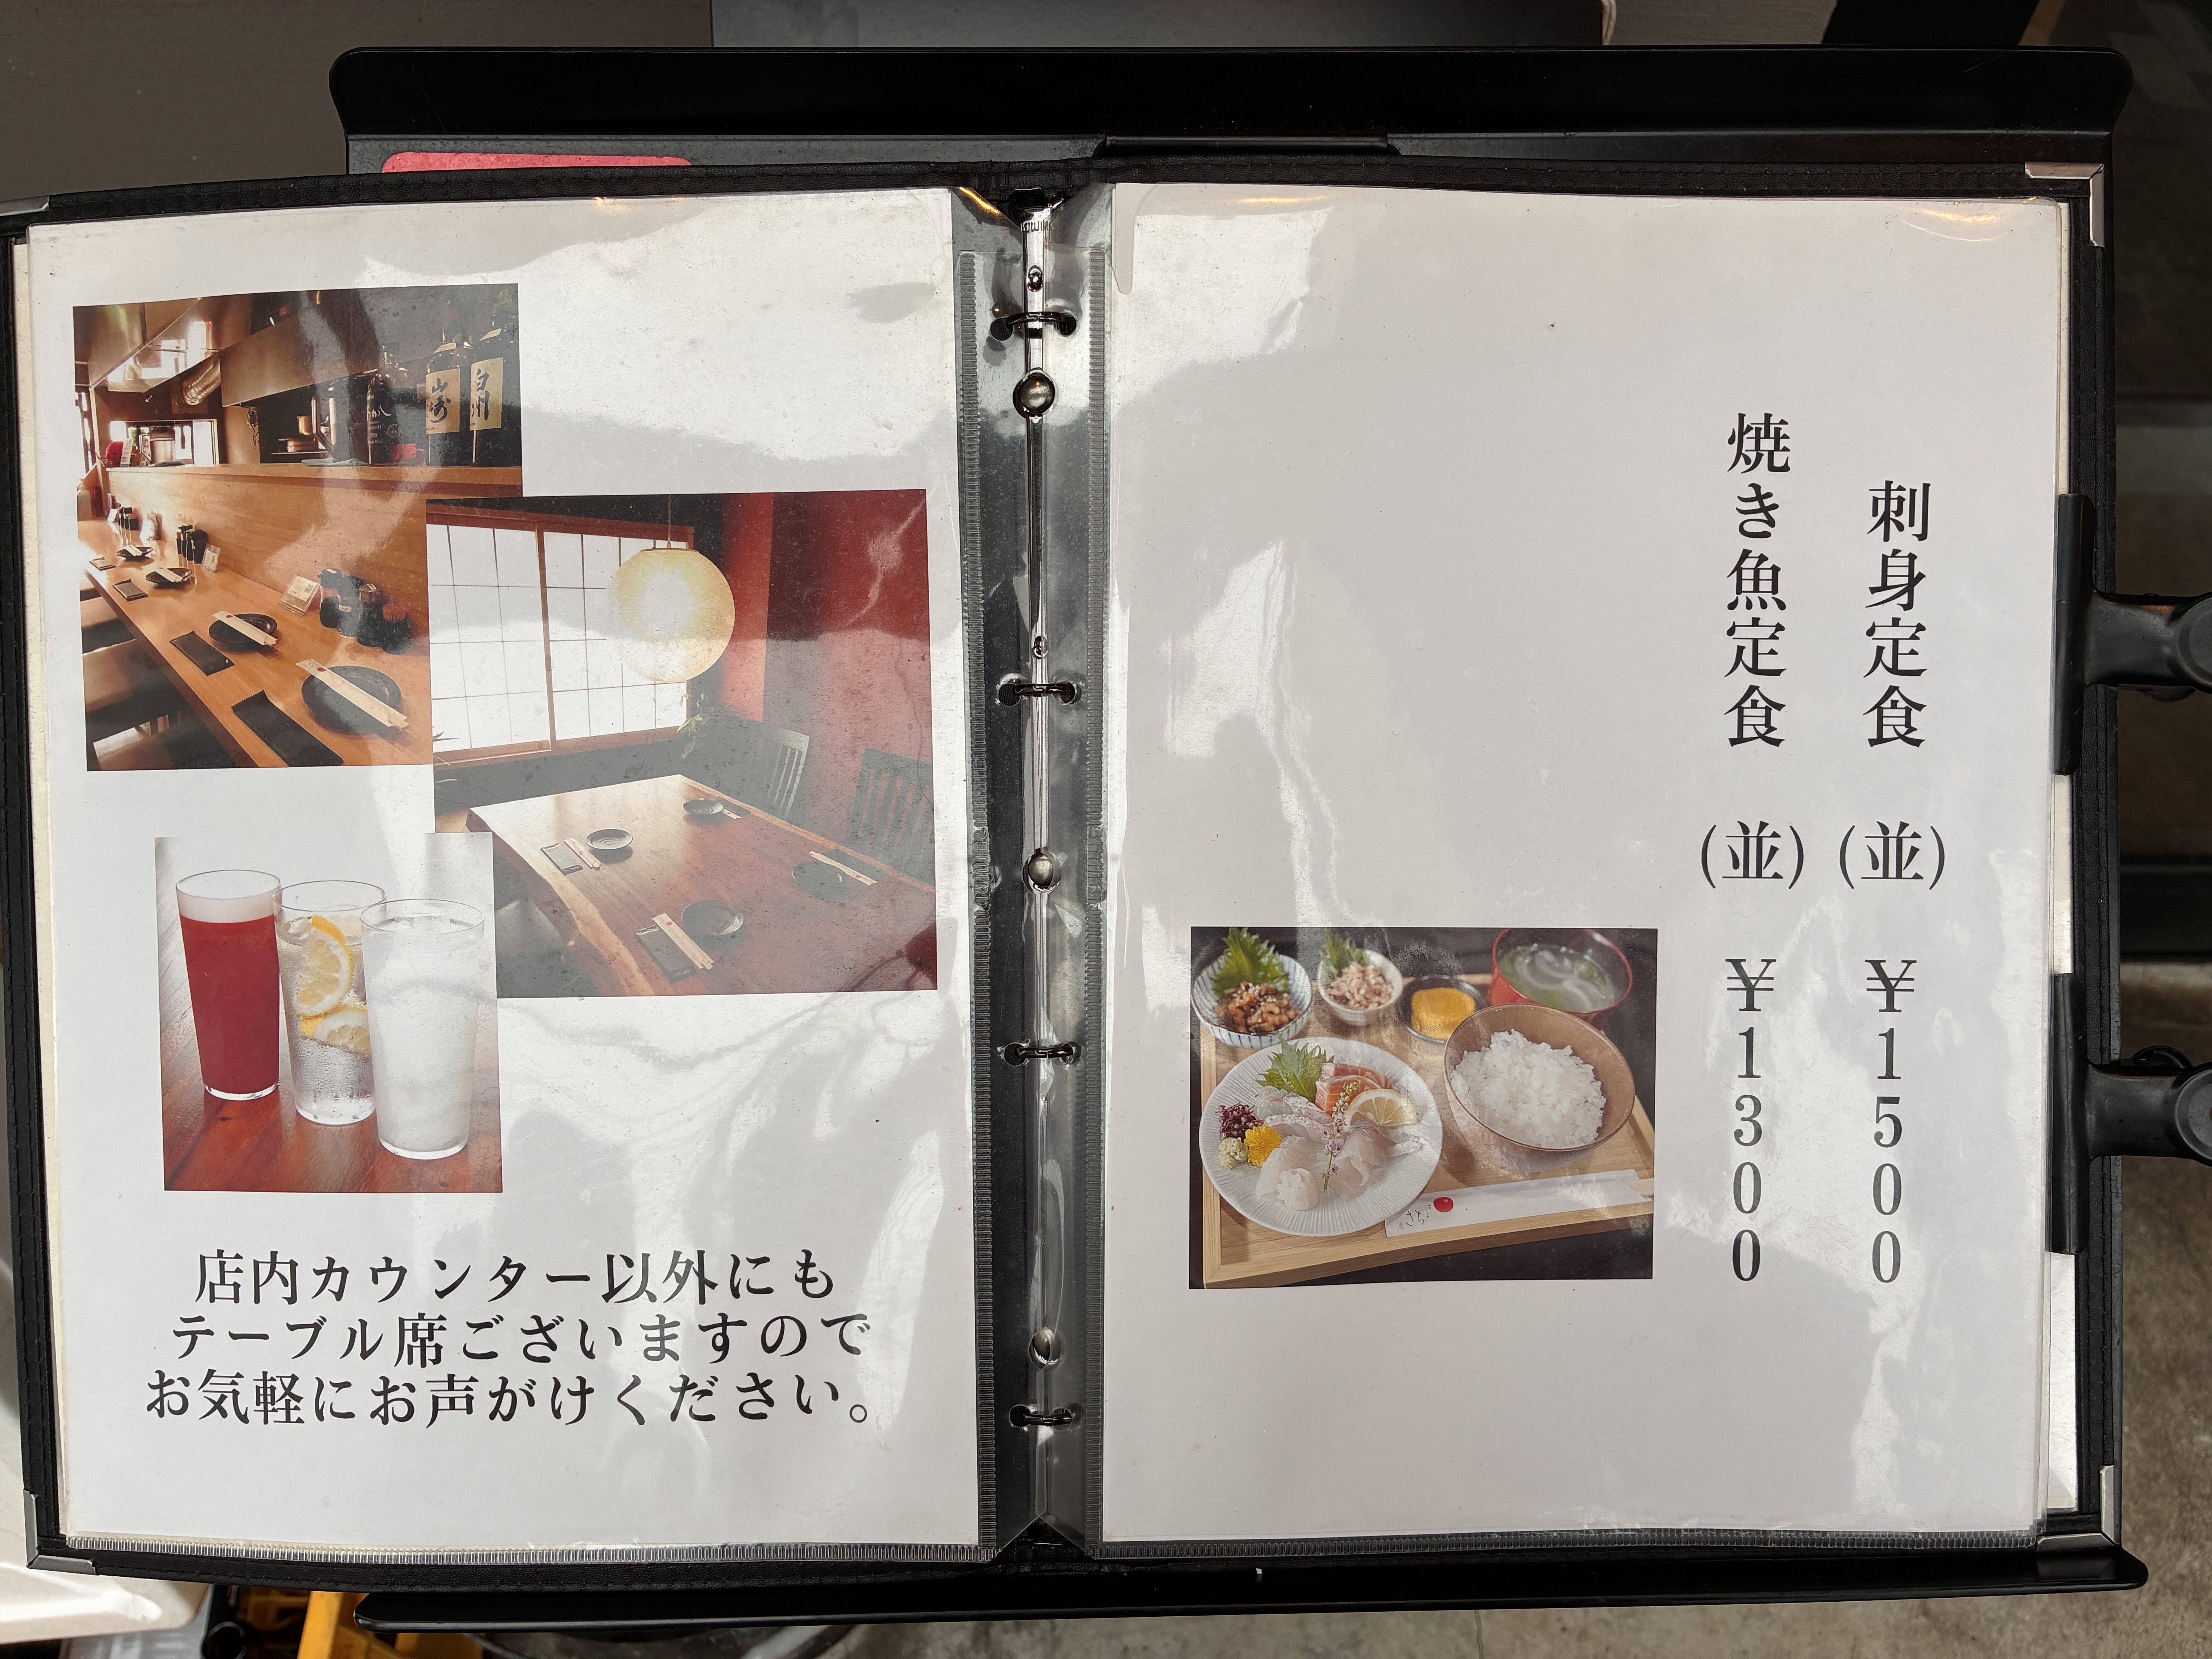 刺身定食 (並) ¥1500
焼き魚定食 (並) ¥1300
山崎
白州
店内カウンター以外にも
テーブル席ございますので
お気軽にお声がけください。